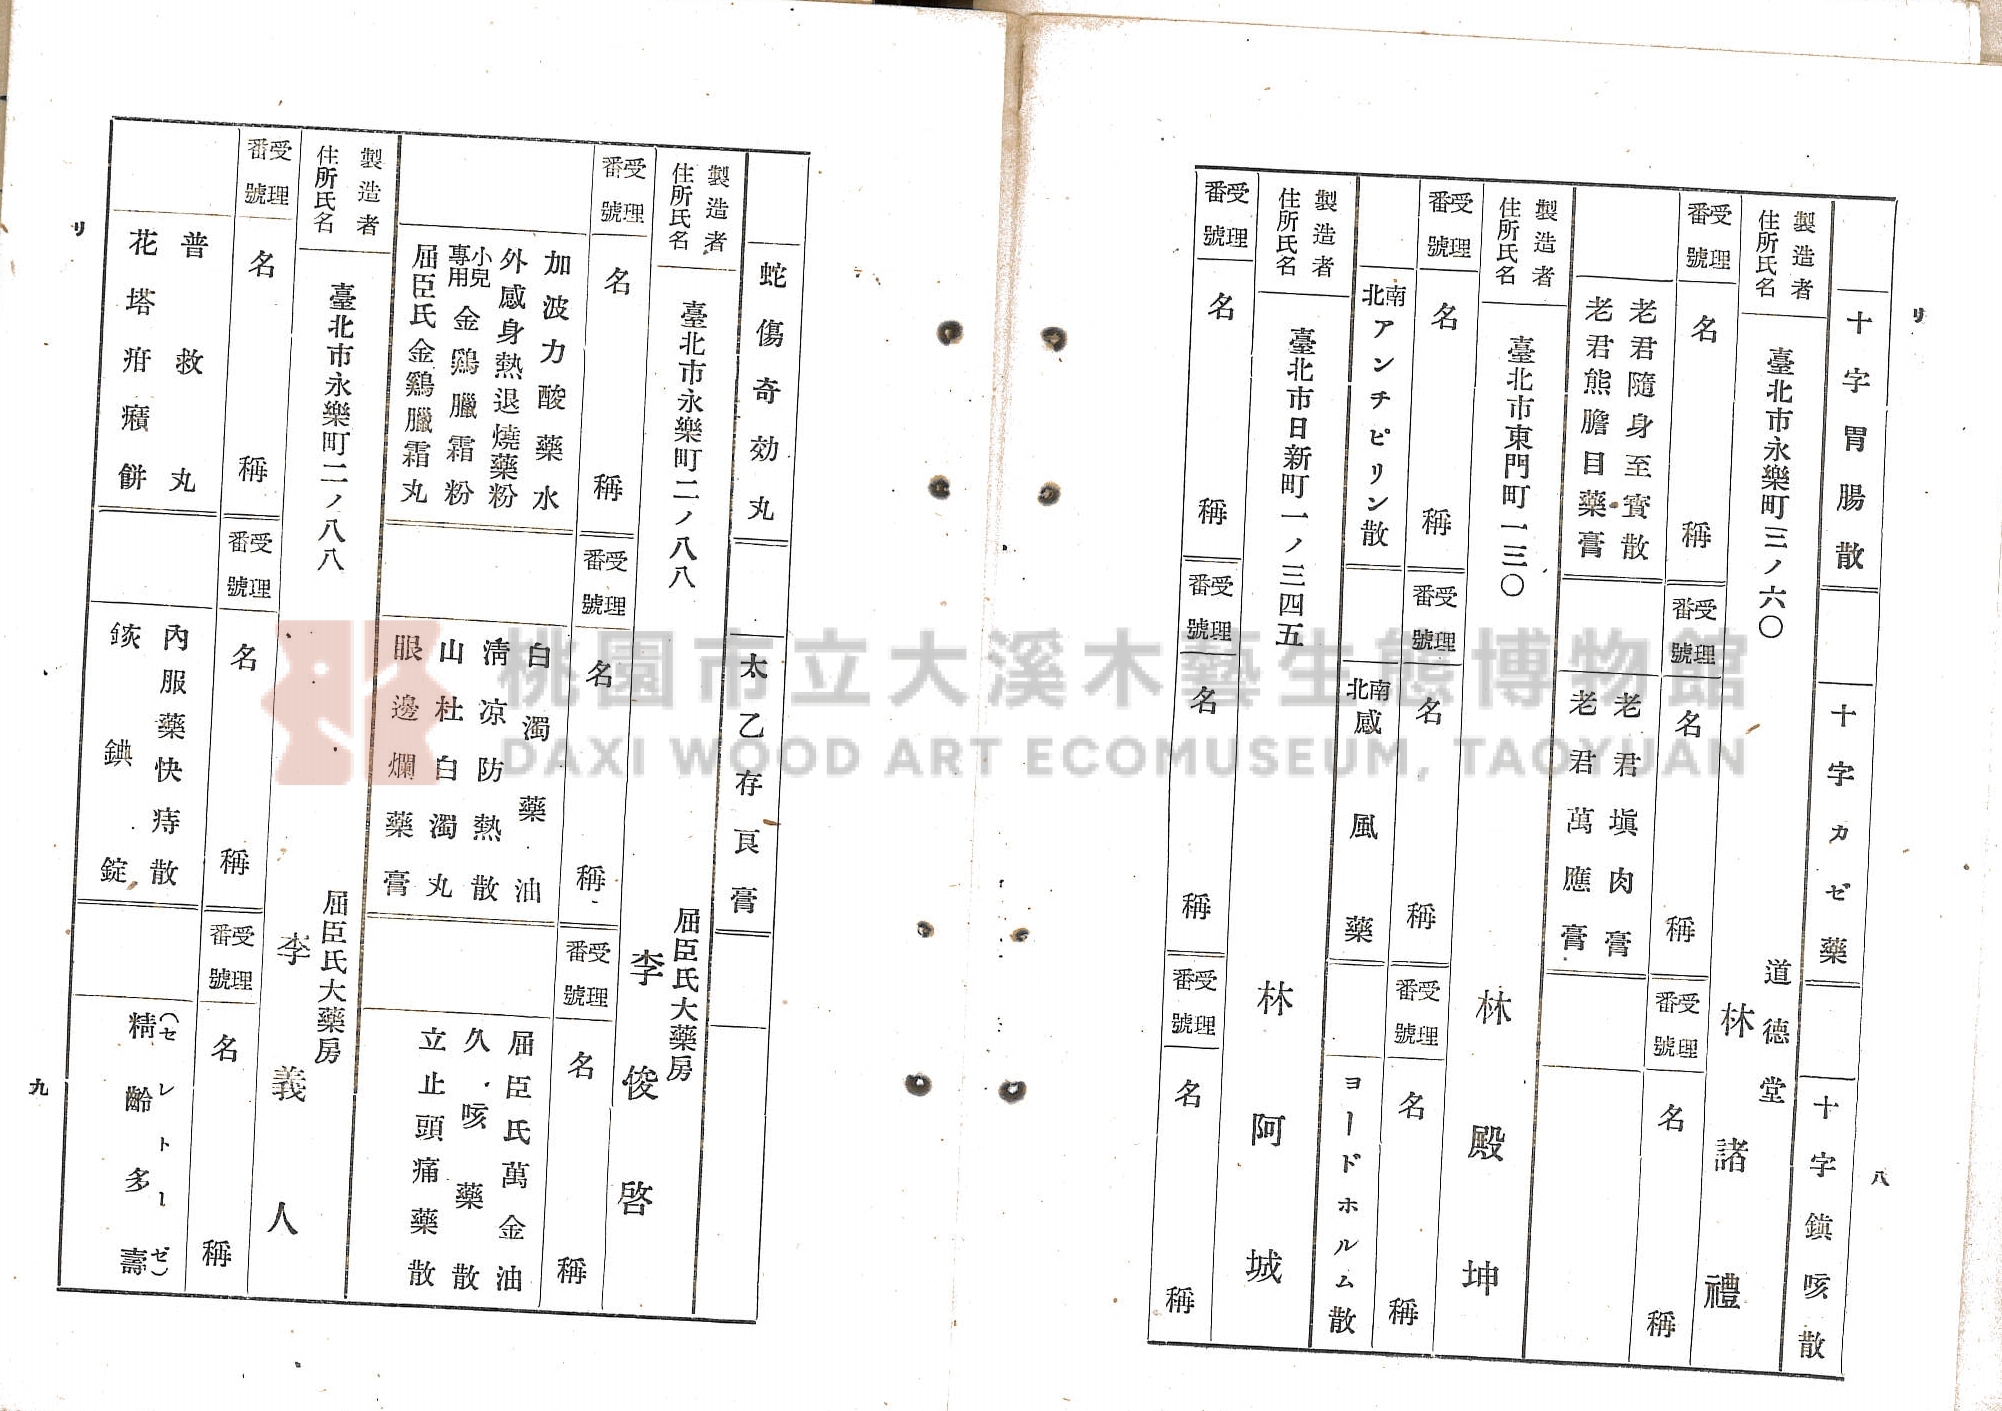 リ
八
十字胃腸散
十字カゼ藥
十字鎭咳散
製造者
住所氏名
臺北市永樂町三ノ六〇
道德堂
林諸禮
受理
番號
名稱
受理
番號
名稱
受理
番號
名稱
老君隨身至寳散
老君熊膽目藥膏
老君塡肉膏
老君萬應膏
製造者
住所氏名
臺北市東門町一三〇
林殿坤
受理
番號
名稱
受理
番號
名稱
受理
番號
名稱
南北アンチピリン散
南北感風藥
ヨードホルム散
製造者
住所氏名
臺北市日新町一ノ三四五
林阿城
受理
番號
名稱
受理
番號
名稱
受理
番號
名稱
蛇傷奇効丸
太乙存艮膏
製造者
住所氏名
臺北市永樂町二ノ八八
屈臣氏大藥房
李俊啓
受理
番號
名稱
受理
番號
名稱
受理
番號
名稱
加波力酸藥水
外感身熱退燒藥粉
小兒專用金鷄臘霜粉
屈臣氏金鷄臘霜丸
白濁藥油
淸凉防熱散
山杜白濁丸
眼邊爛藥膏
屈臣氏萬金油
久咳藥散
立止頭痛藥散
製造者
住所氏名
臺北市永樂町二ノ八八
屈臣氏大藥房
李義人
受理
番號
名稱
受理
番號
名稱
受理
番號
名稱
普救丸
花塔疳癪餅
內服藥快痔散
錟錪錠
(セレトーゼ)
精齡多壽
リ
九
桃園市立大溪木藝生態博物館
DAXI WOOD ART ECOMUSEUM, TAOYUAN